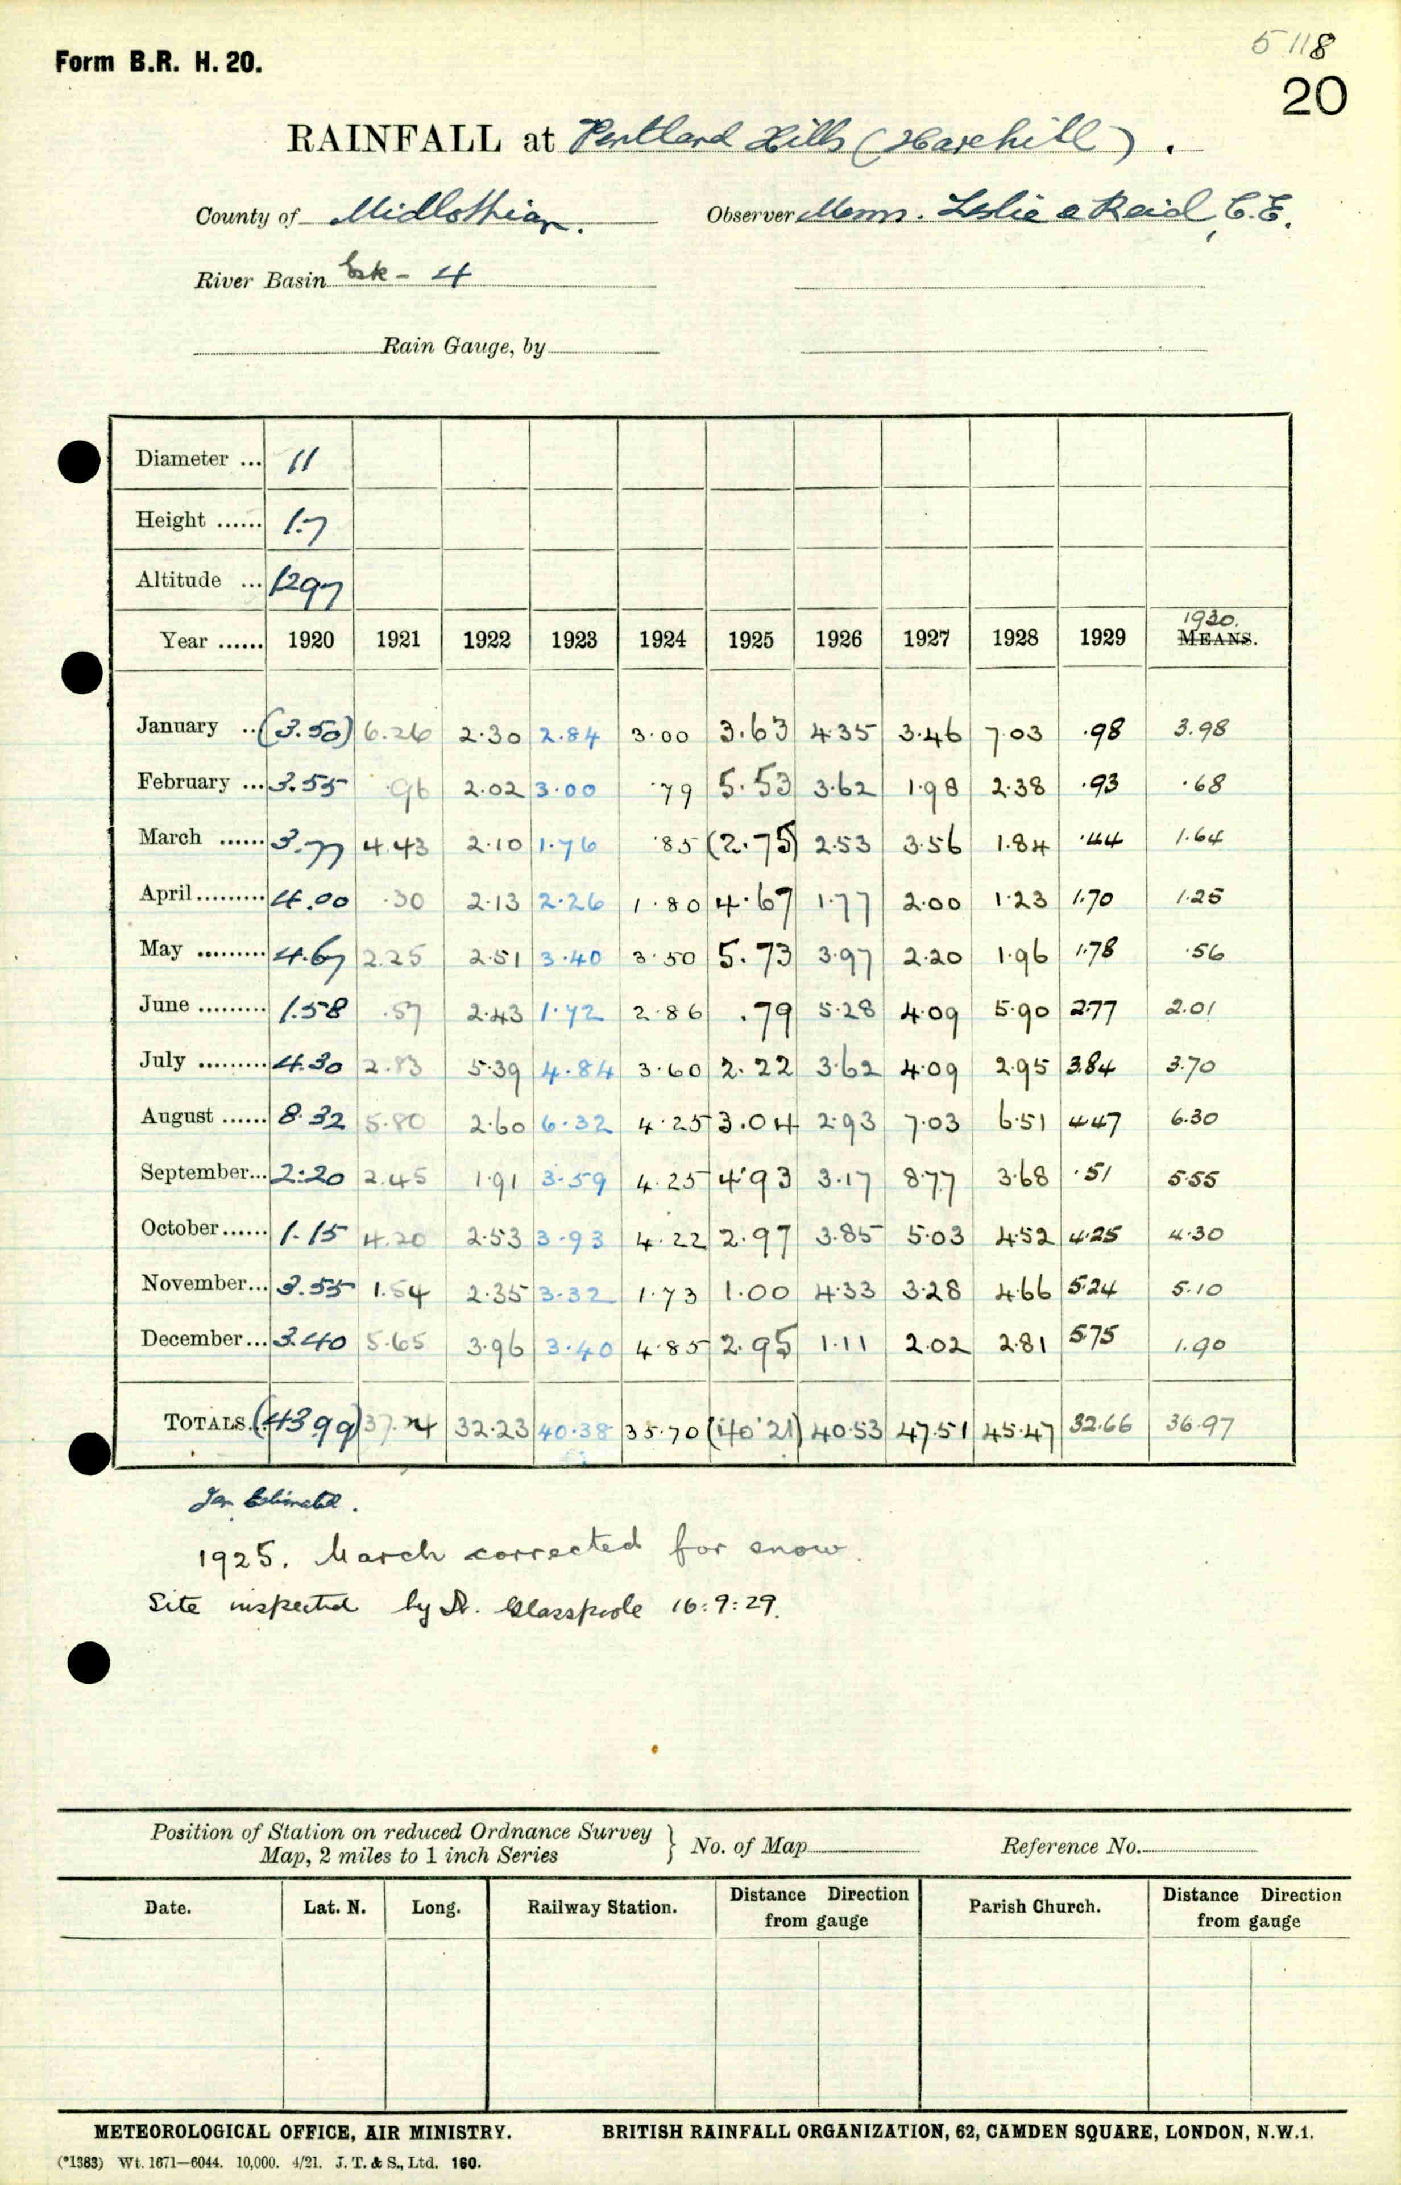 5118
Form B.R. H. 20.
20
RAINFALL at Pentland Hills (Harehill).
County of Midlothian. Observer Messrs. Leslie & Reid, C.E.
River Basin Esk - 4
Rain Gauge, by
Diameter ... 11
Height ...... 1.7
Altitude ... 1297
1930.
Year ...... 1920 1921 1922 1923 1924 1925 1926 1927 1928 1929 MEANS.
January .. (3.50) 6.26 2.30 2.84 3.00 3.63 4.35 3.46 7.03 .98 3.98
February ... 3.55 .96 2.02 3.00 .79 5.53 3.62 1.98 2.38 .93 .68
March ...... 3.77 4.43 2.10 1.76 .85 (2.75) 2.53 3.56 1.84 .44 1.64
April ......... 4.00 .30 2.13 2.26 1.80 4.67 1.77 2.00 1.23 1.70 1.25
May ......... 4.67 2.25 2.51 3.40 3.50 5.73 3.97 2.20 1.96 1.78 .56
June ......... 1.58 .57 2.43 1.72 2.86 .79 5.28 4.09 5.90 2.77 2.01
July ......... 4.30 2.83 5.39 4.84 3.60 2.22 3.62 4.09 2.95 3.84 3.70
August ...... 8.32 5.80 2.60 6.32 4.25 3.04 2.93 7.03 6.51 4.47 6.30
September... 2.20 2.45 1.91 3.59 4.25 4.93 3.17 8.77 3.68 .51 5.55
October...... 1.15 4.20 2.53 3.93 4.22 2.97 3.85 5.03 4.52 4.25 4.30
November... 3.55 1.54 2.35 3.32 1.73 1.00 4.33 3.28 4.66 5.24 5.10
December... 3.40 5.65 3.96 3.40 4.85 2.95 1.11 2.02 2.81 5.75 1.90
TOTALS. (43.99) 37.24 32.23 40.38 35.70 (40.21) 40.53 47.51 45.47 32.66 36.97
Jan Estimated.
1925. March corrected for snow.
Site inspected by Dr. Glasspoole 16:9:29.
Position of Station on reduced Ordnance Survey
Map, 2 miles to 1 inch Series } No. of Map Reference No.
Date. Lat. N. Long. Railway Station. Distance Direction from gauge Parish Church. Distance Direction from gauge
METEOROLOGICAL OFFICE, AIR MINISTRY. BRITISH RAINFALL ORGANIZATION, 62, CAMDEN SQUARE, LONDON, N.W.1.
(*1383) Wt. 1671—6044. 10,000. 4/21. J. T. & S., Ltd. 160.